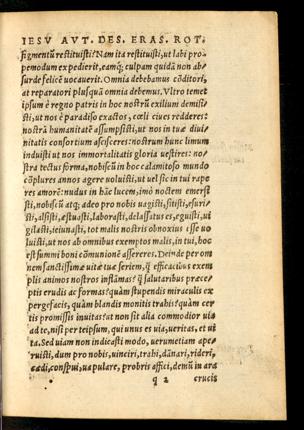 IESV AVT. DES. ERAS. ROT.
figmentũ restituisti? Nam ita restituisti, ut labi pro-
pemodum expedierit, eamq; culpam quidã non ab-
surde felicẽ uocauerit. Omnia debebamus cõditori,
at reparatori plusquã omnia debemus. Vltro temet
ipsum è regno patris in hoc nostrũ exilium demisi-
sti, ut nos è paradiso exactos, cœli ciues redderes:
nostrã humanitatẽ assumpsisti, ut nos in tuæ diui-
nitatis consortium ascisceres: nostrum hunc limum
induisti ut nos immortalitatis gloria uestires: no-
stra tectus forma, nobiscũ in hoc calamitoso mundo
cõplures annos agere uoluisti, ut uel sic in tui rape
res amorẽ: nudus in hãc lucem, imò noctem emersi
sti, nobiscũ atq; adeo pro nobis uagisti, sitisti, esuri-
sti, alsisti, æstuasti, laborasti, delassatus es, eguisti, ui
gilasti, ieiunasti, tot malis nostris obnoxius esse uo
luisti, ut nos ab omnibus exemptos malis, in tui, hoc
est summi boni cõmunionẽ assereres. Deinde per om
nem sanctissimæ uitæ tuæ seriem, q̃ efficacibus exem
plis animos nostro instãmas? q̃ salutaribus præce-
ptis erudis ac formas? quàm stupendis miraculis ex
pergefacis, quàm blandis monitis trahis? quàm cer
tis promissis inuitas? ut non sit alia commodior uia
ad te, nisi per teipsum, qui unus es uia, ueritas, et ui
ta. Sed uiam non indicasti modo, uerumetiam ape-
ruisti, dum pro nobis, uinciri, trahi, dãnari, rideri,
cædi, conspui, uapulare, probris affici, demũ in ara
q 2 crucis